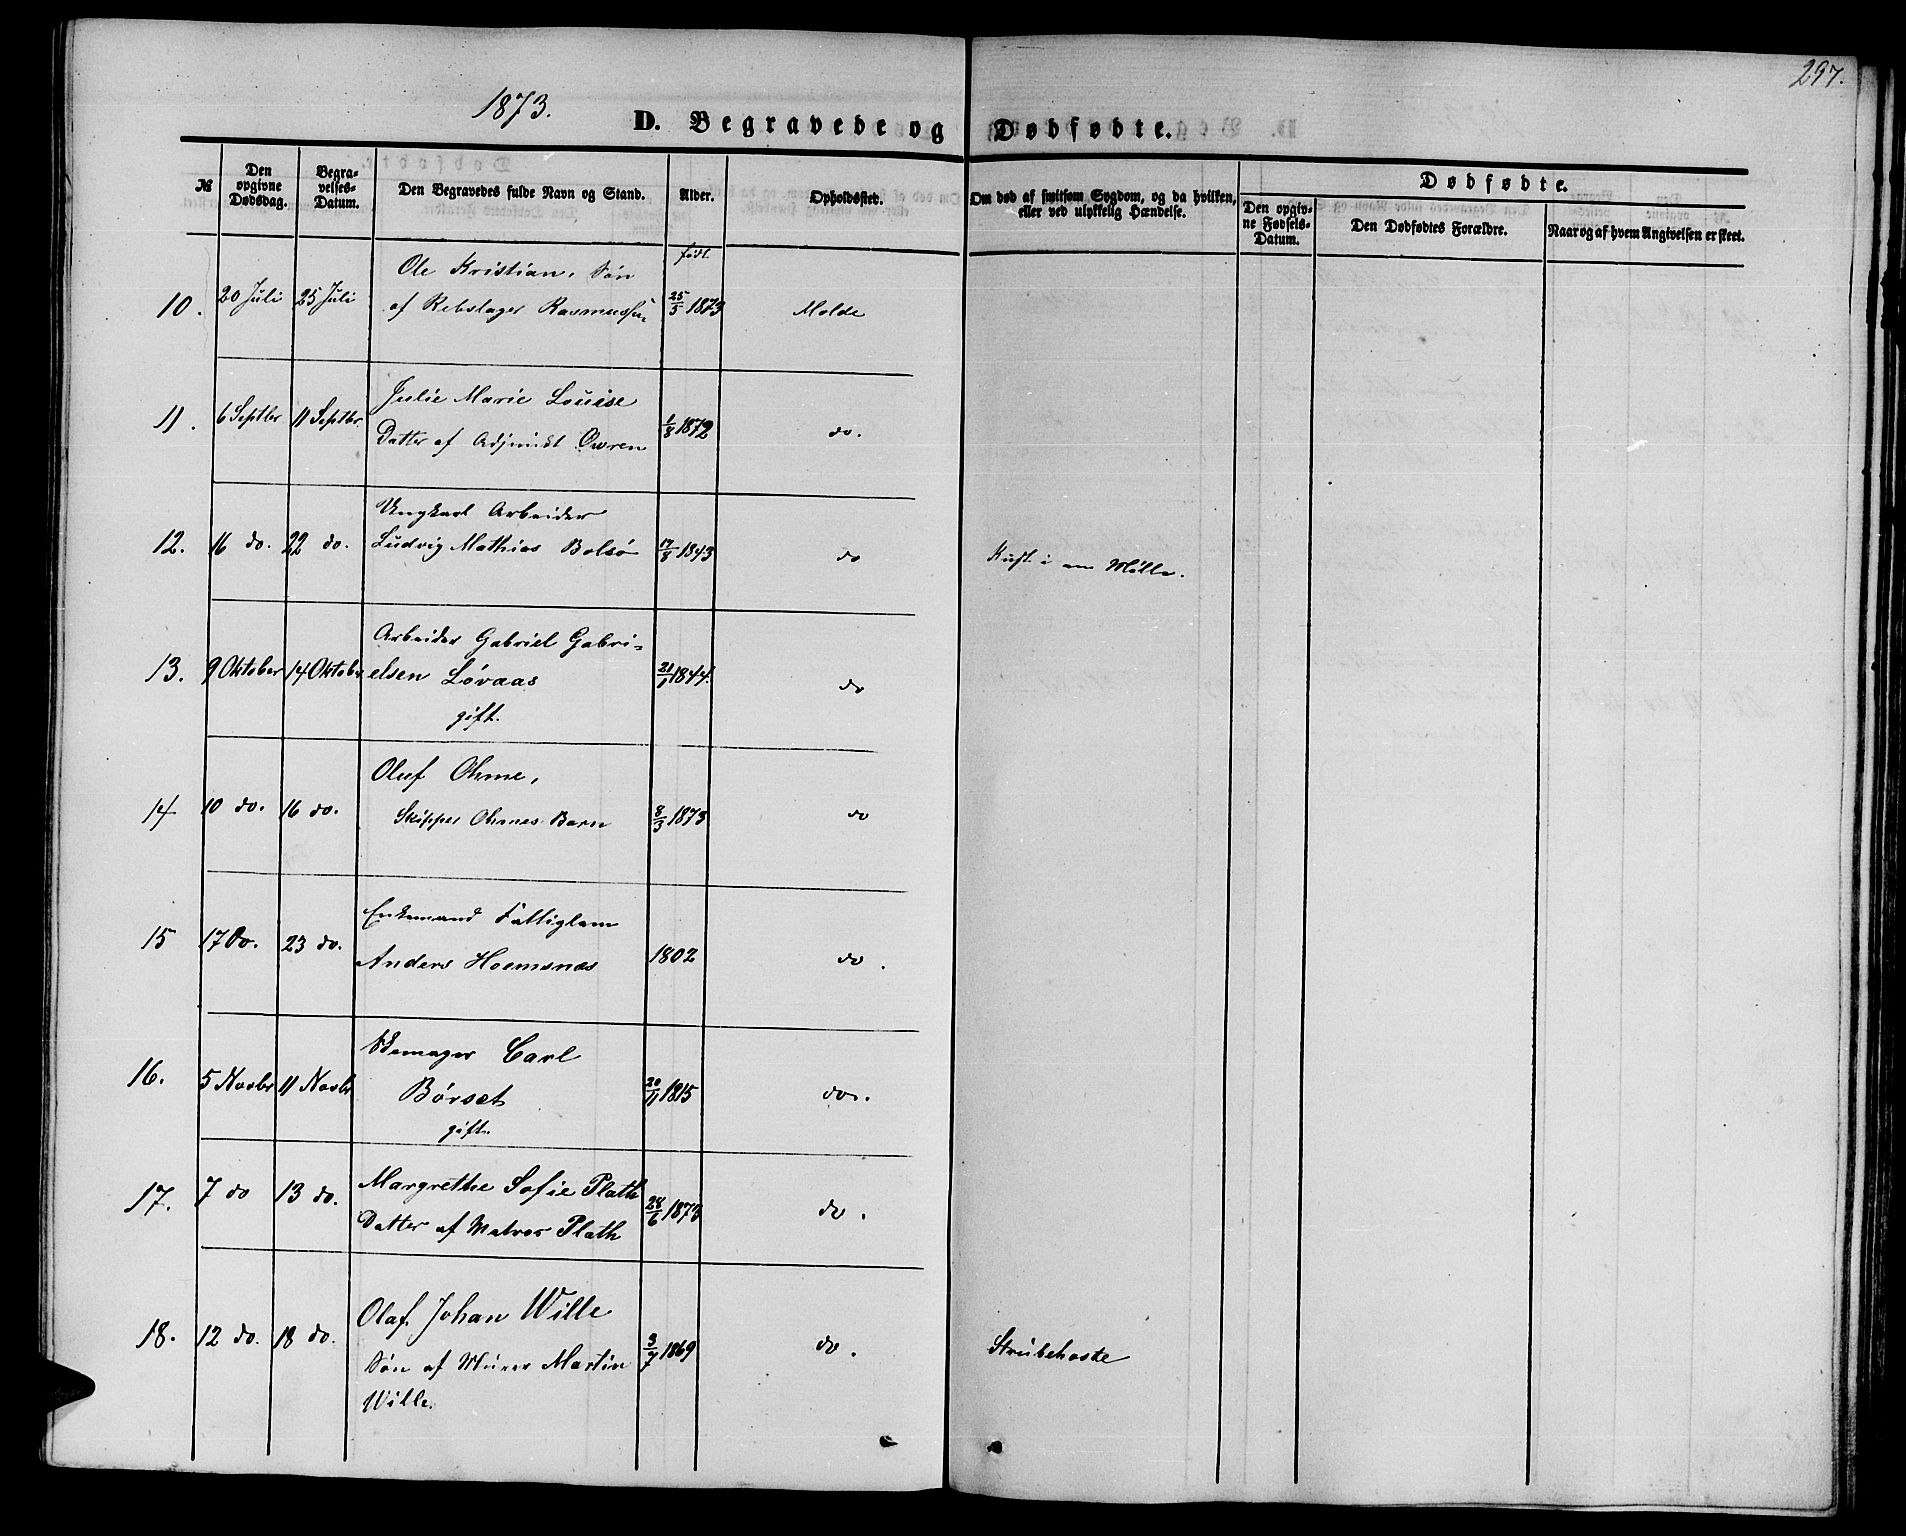 297.
1873.
D. Begravede og Dødfødte.
№
Den opgivne Dødsdag.
Begravelses-Datum.
Den Begravedes fulde Navn og Stand.
Alder.
Opholdssted.
Om død af smitsom Sygdom, og da hvilken, eller ved ulykkelig Hændelse.
Dødfødte.
Den opgivne Fødsels-Datum.
Den Dødfødtes Forældre.
Naar og af hvem Angivelsen er skeet.
født
10. 20 Juli 25 Juli Ole Kristian, Søn
af Rebslager Rasmussen 25/5 1873 Molde
11. 6 Septbr 11 Septbr. Julie Marie Louise
Datter af Adjunkt Owren 1/8 1872 do.
12. 16 do. 22 do. Ungkarl Arbeider
Ludvig Mathias Bolsø 17/8 1843 do i en Mølle.
13. 9 Oktober 14 Oktober Arbeider Gabriel Gabri-
elsen Løvaas 21/1 1844. do
gift.
14 10 do. 16 do. Oluf Ohme,
Skipper Ohmes Barn 8/3 1873 do
15 17 do. 23 do. Enkemand Fattiglem
Anders Hoemsnæs 1802 do.
16. 5 Novbr 11 Novbr Skomager Carl
Børset 20/11 1815 do.
gift.
17. 7 do 13 do. Margrethe Sofie Plath
Datter af Matros Plath 28/6 1873 do.
18. 12 do. 18 do. Olaf Johan Wille
Søn af Murer Martin 3/7 1869 do. Strubehoste
Wille.